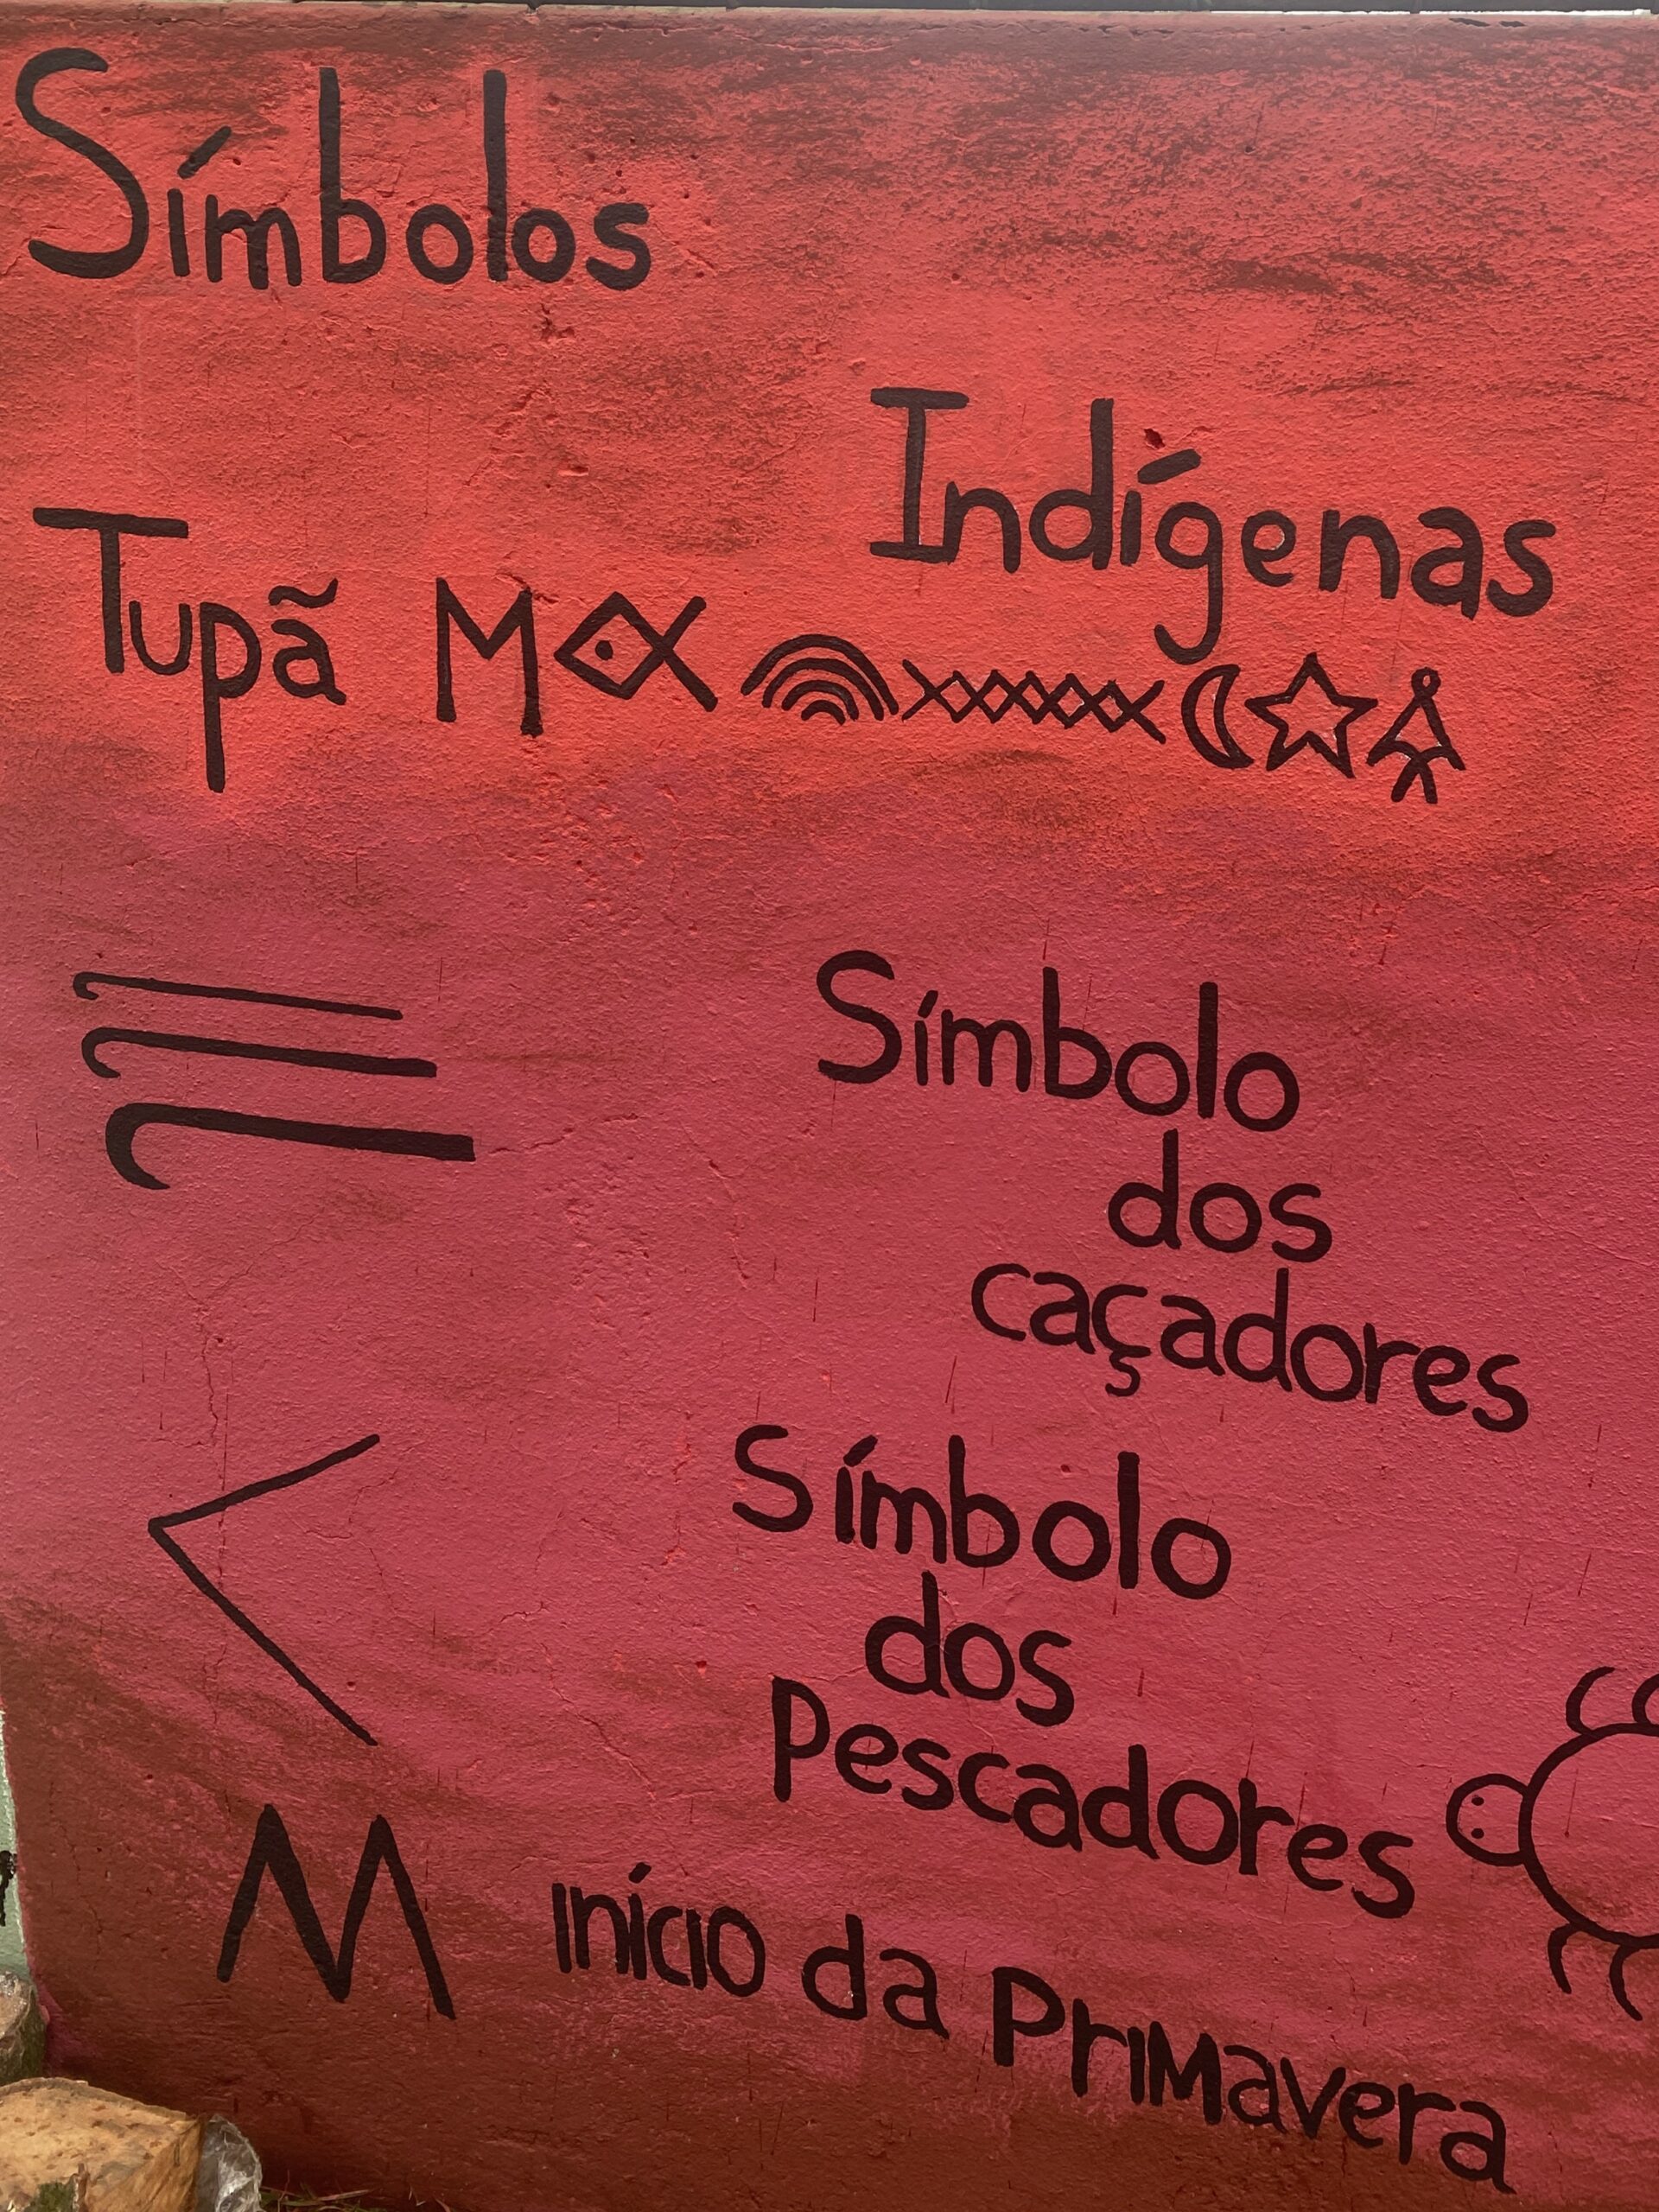 Símbolos
Indígenas
Tupã M
Símbolo
dos
caçadores
Símbolo
dos
Pescadores
M início da Primavera